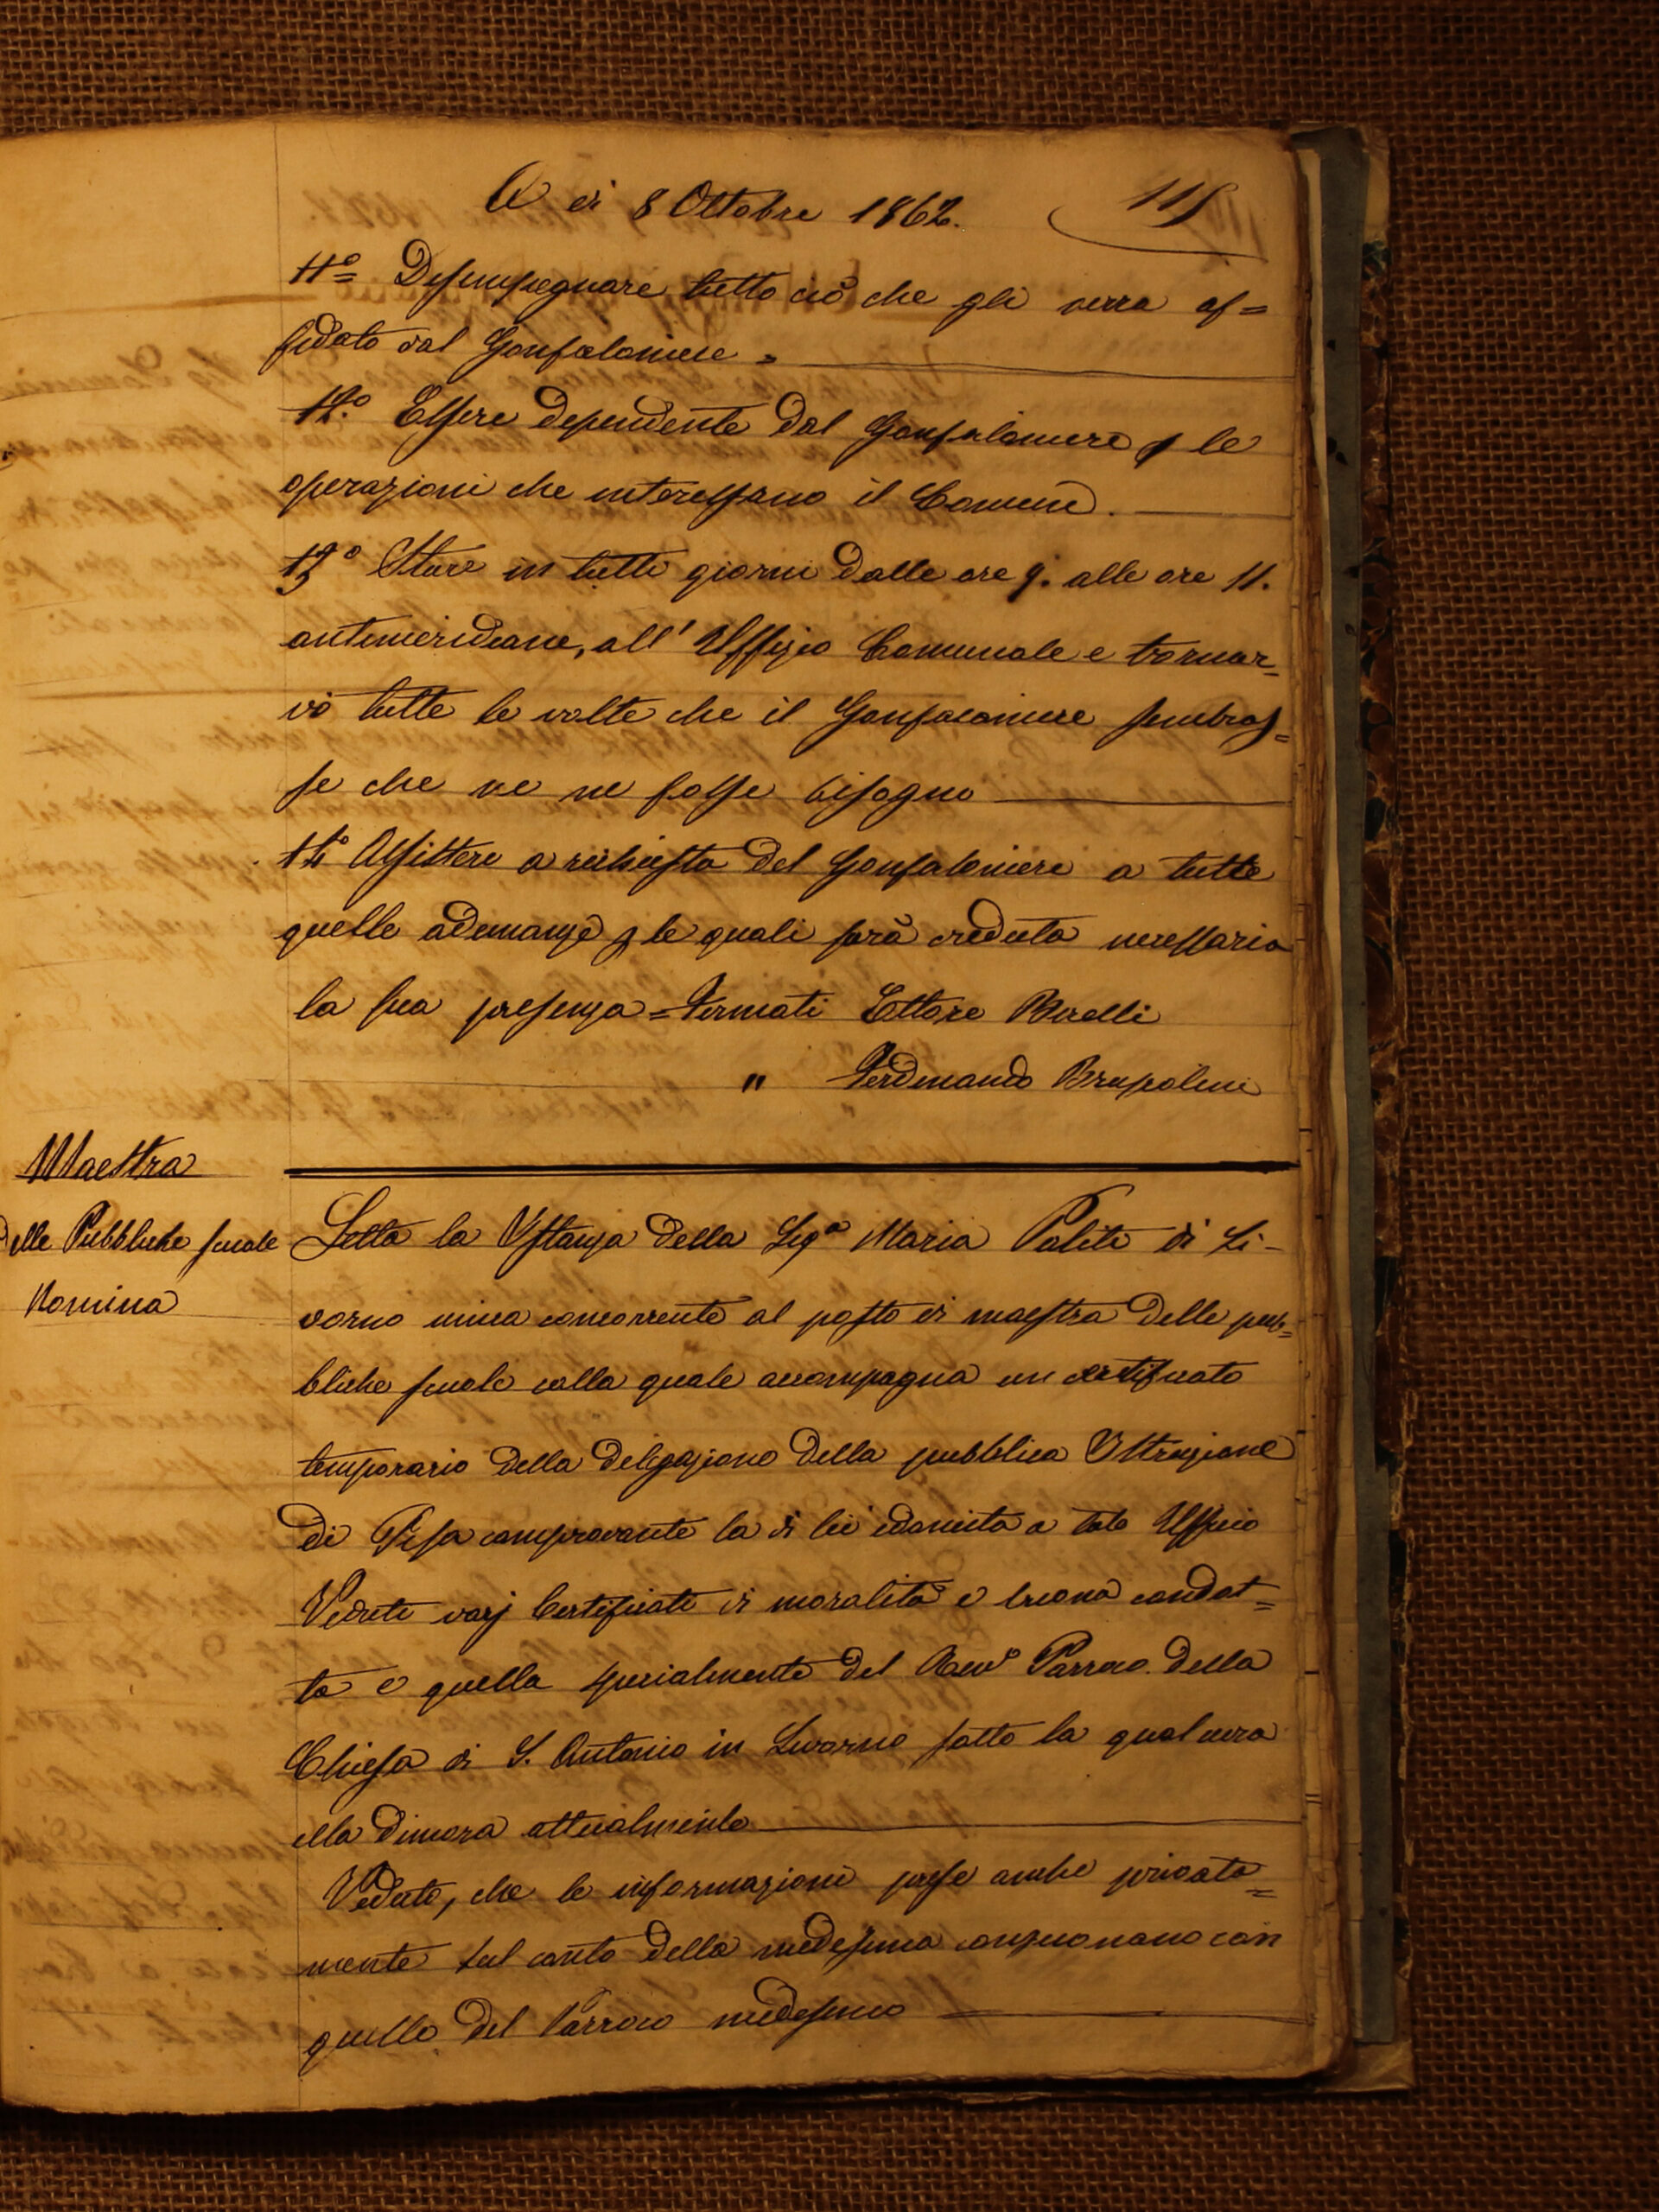 A dì 8 Ottobre 1862.
115
11º Desimpegnare tutto ciò che gli verra af=
fidato dal Gonfaloniere =
12.º Essere dependente dal Gonfaloniere p le
operazioni che interessano il Comune.
13º Stare in tutti giorni dalle ore 9. alle ore 11.
antimeridiane, all' Uffizio Comunale e tornar=
vi tutte le volte che il Gonfaloniere sembras=
se che ve ne fosse bisogno
14º Assistere a richiesta del Gonfaloniere a tutte
quelle adunanze p le quali sarà creduta necessaria
la sua presenza = Firmati Ettore Borelli
" Ferdinando
Maestra
delle Pubbliche scuole
Nomina
Letta la Istanza della Sigª Maria Politi di Li-
vorno unica concorrente al posto di maestra delle pub=
bliche scuole colla quale accompagna un certificato
temporario della delegazione della pubblica Istruzione
di Pisa comprovante la di lei idoneità a tale Ufficio
Veduti varj Certificati di moralità e buona condot=
ta e quella specialmente del Revº Parroco della
Chiesa di S. Antonio in Livorno sotto la qual cura
ella dimora attualmente
Veduto, che le informazioni prese anche privata=
mente sul conto della medesima consuonano con
quello del Parroco medesimo